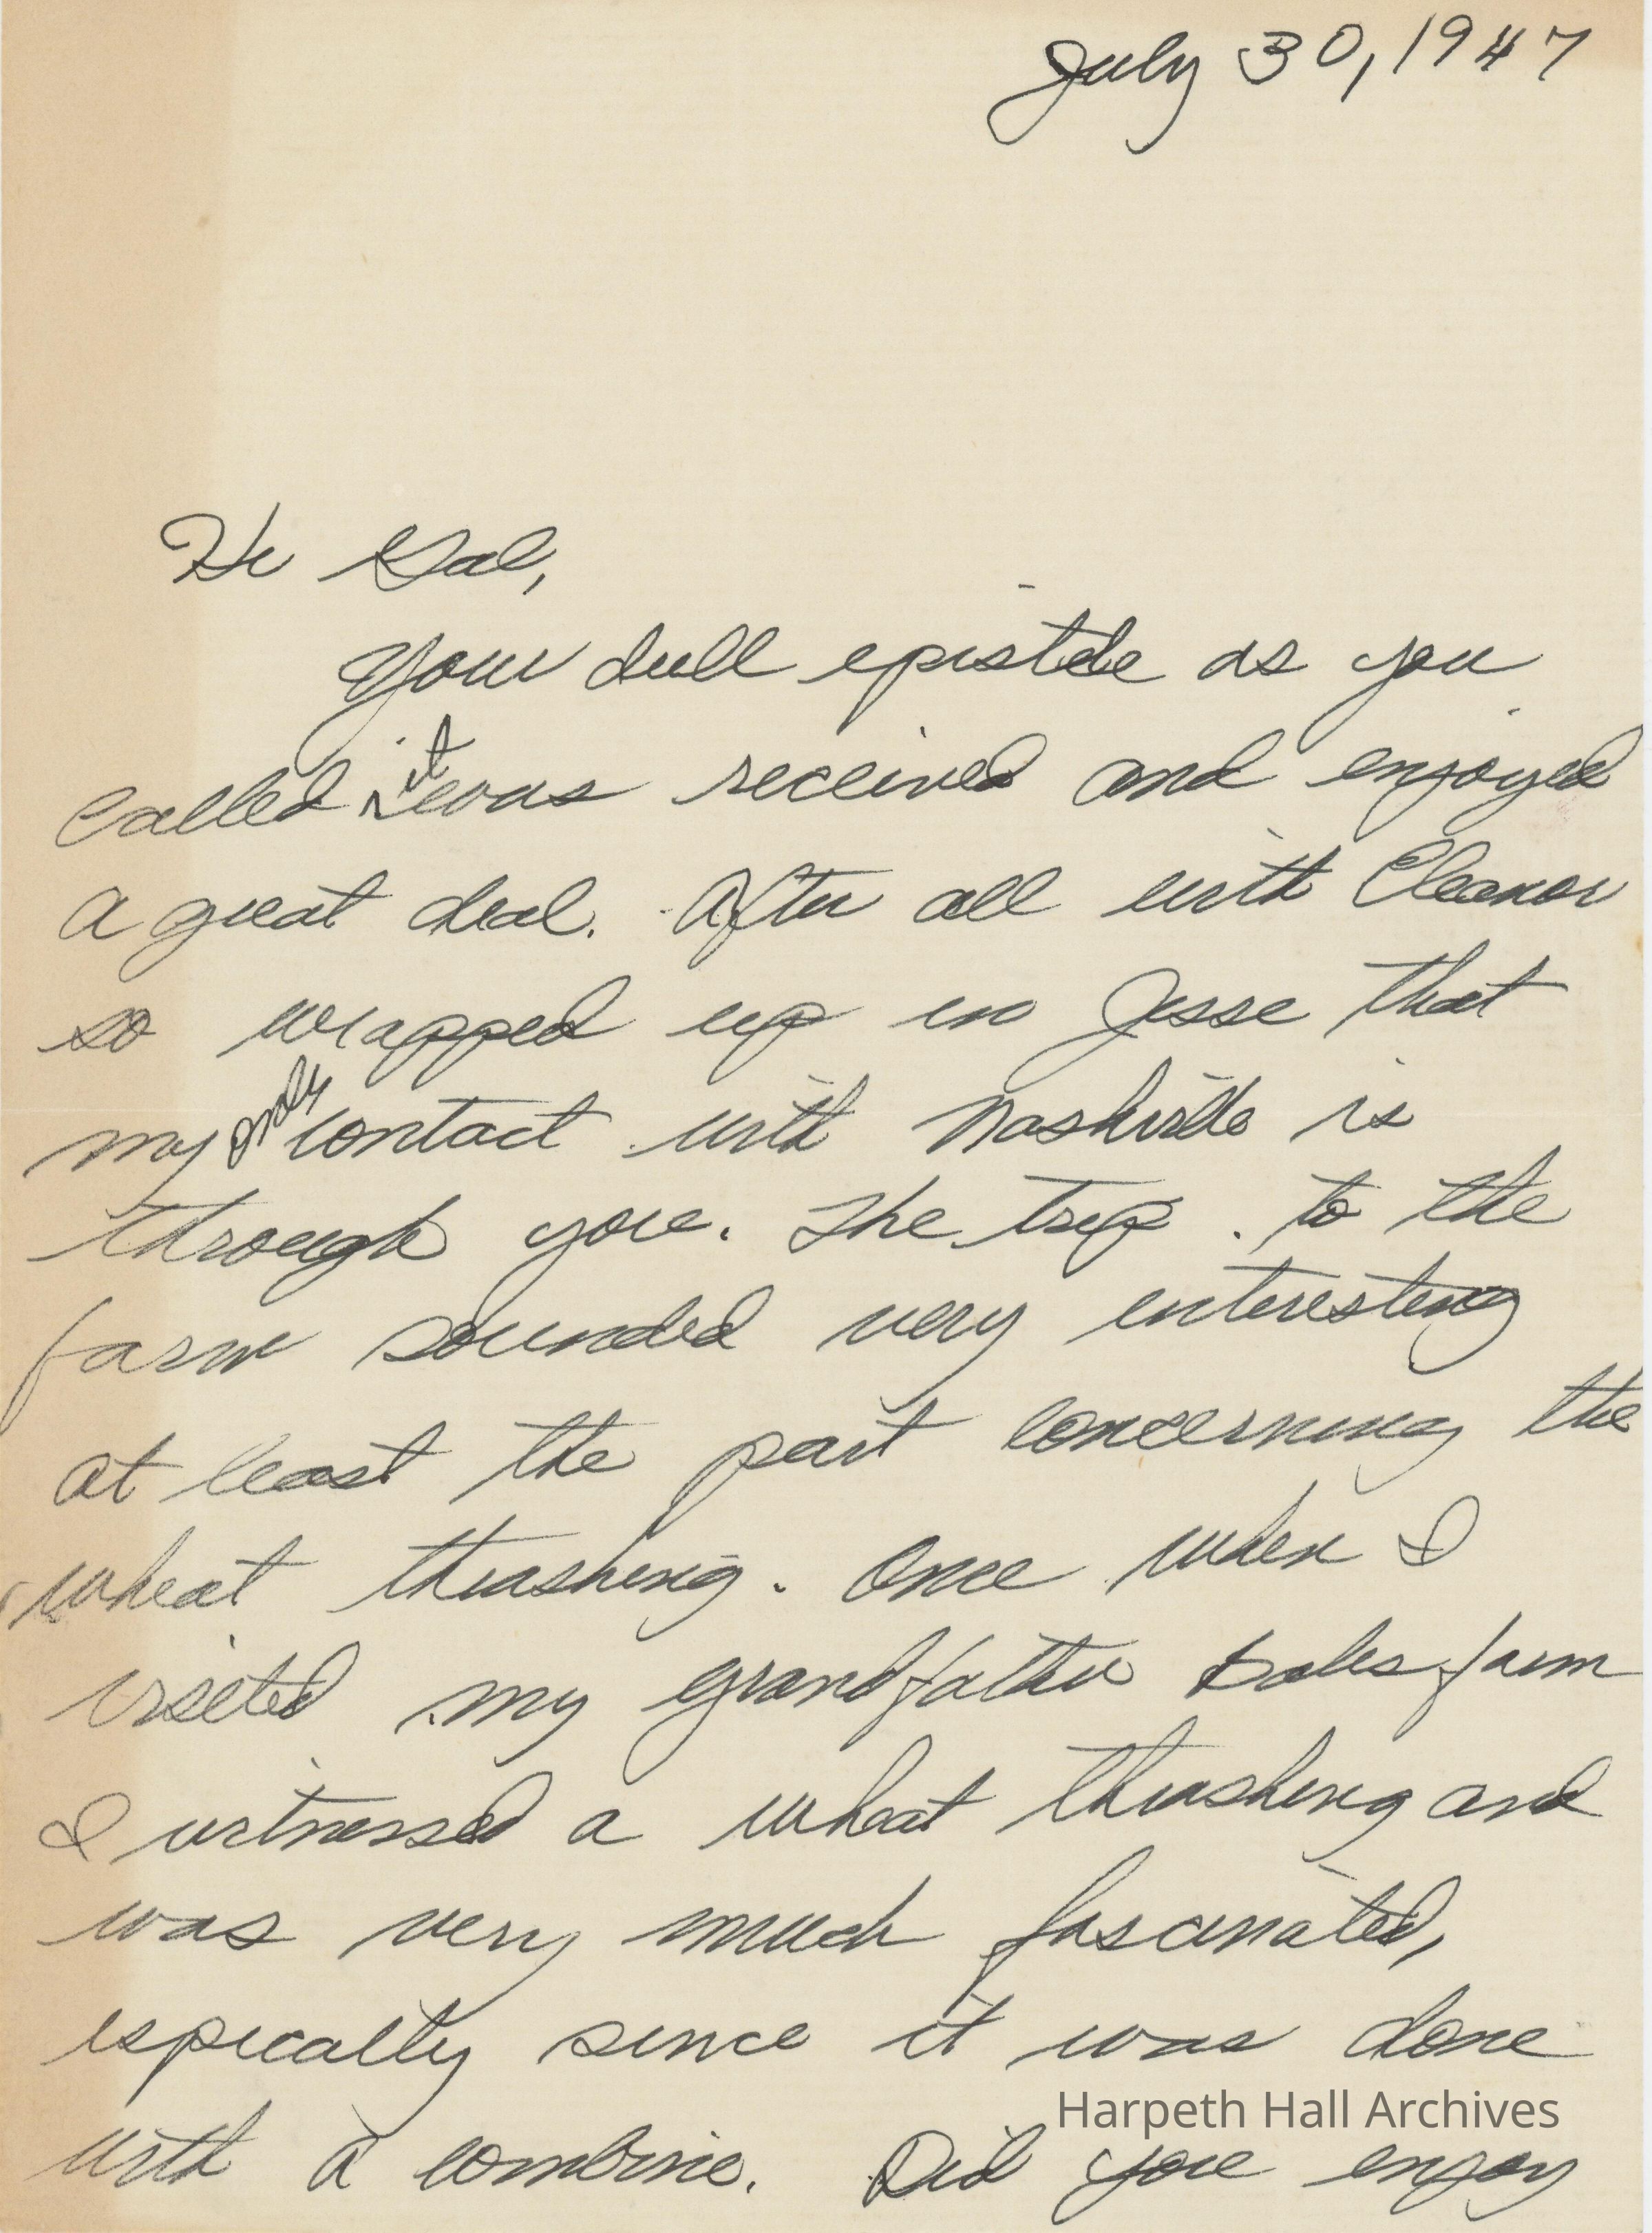 July 30, 1947
Hi Gal,
Your dull epistle as you
called it was received and enjoyed
a great deal. After all with Eleanor
so wrapped up in Jesse that
my only contact with Nashville is
through you. The trip to the
farm sounded very interesting
at least the part concerning the
wheat thrashing. Once when I
visited my grandfather farm
I witnessed a wheat thrashing and
was very much fascinated,
espically since it was done
with a combine. Did you enjoy
Harpeth Hall Archives